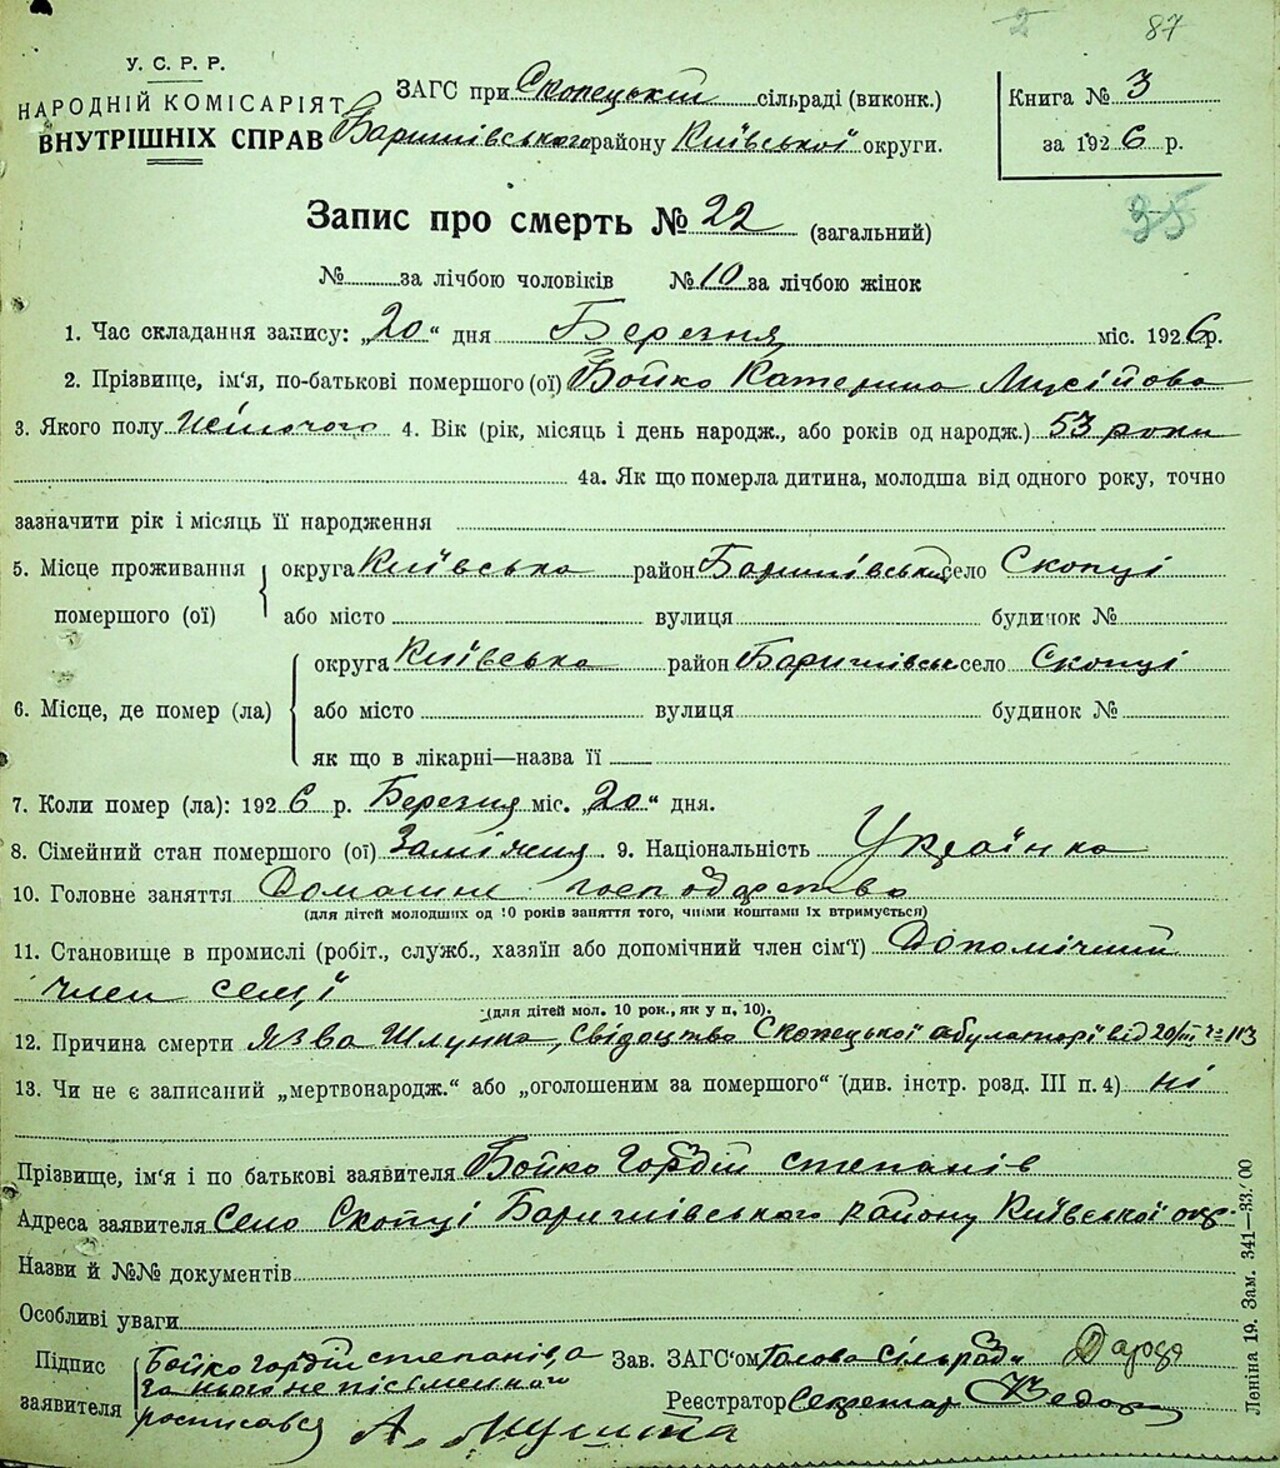 87
У. С. Р. Р.
НАРОДНІЙ КОМІСАРІЯТ
ВНУТРІШНІХ СПРАВ
ЗАГС при Скопецькій сільраді (виконк.)
Баришівського району Київської округи.
Книга № 3
за 1926 р.
Запис про смерть № 22 (загальний)
35
№ за лічбою чоловіків № 10 за лічбою жінок
1. Час складання запису: „20“ дня Березня міс. 1926р.
2. Прізвище, ім'я, по-батькові помершого (ої) Бойко Катерина Мусійова
3. Якого полу Жіночого 4. Вік (рік, місяць і день народж., або років од народж.) 53 роки
4а. Як що померла дитина, молодша від одного року, точно
зазначити рік і місяць її народження
5. Місце проживання помершого (ої) округа Київська район Баришівський село Скопці
або місто вулиця будинок №
6. Місце, де помер (ла) округа Київська район Баришівськ село Скопці
або місто вулиця будинок №
як що в лікарні—назва її
7. Коли помер (ла): 1926 р. Березня міс. „20“ дня.
8. Сімейний стан помершого (ої) Заміжня. 9. Національність Українка
10. Головне заняття Домашнє господарство
(для дітей молодших од 10 років заняття того, чиїми коштами їх втримується)
11. Становище в промислі (робіт., служб., хазяїн або допомічний член сім'ї) Допомічний
член семʼї
(для дітей мол. 10 рок., як у п. 10).
12. Причина смерти Язва Шлунка, Свідоцтво Скопецької абулаторії від 20/III № 113
13. Чи не є записаний „мертвонародж.“ або „оголошеним за помершого“ (див. інстр. розд. III п. 4) ні
Прізвище, ім'я і по батькові заявителя Бойко Гордій степанів
Адреса заявителя Село Скопці Баришівського Району Київської окр.
Назви й №№ документів
Особливі уваги
Підпис заявителя Бойко Гордій степанів, а
за нього не písьменного
росписався
Зав. ЗАГС'ом Голова Сільради
Реєстратор Секретар
Леніна 19. Зам. 341—33.' 00